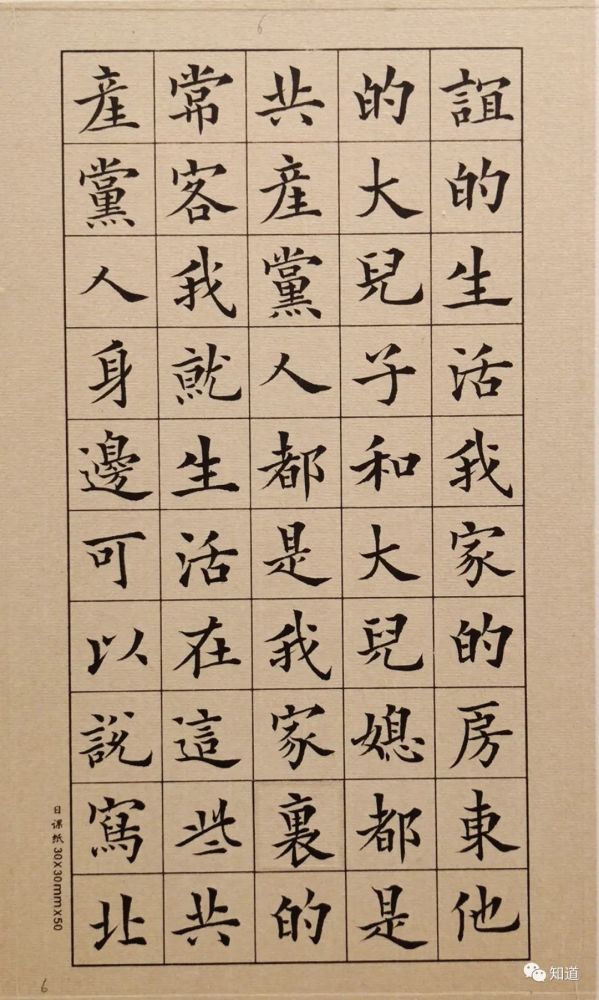 6
誼的生活我家的房東他
的大兒子和大兒媳都是
共產黨人都是我家裏的
常客我就生活在這些共
產黨人身邊可以說寫北
日课纸 30X30mmX50
6
知道